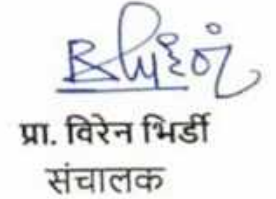 प्रा. विरेन भिर्डी
संचालक